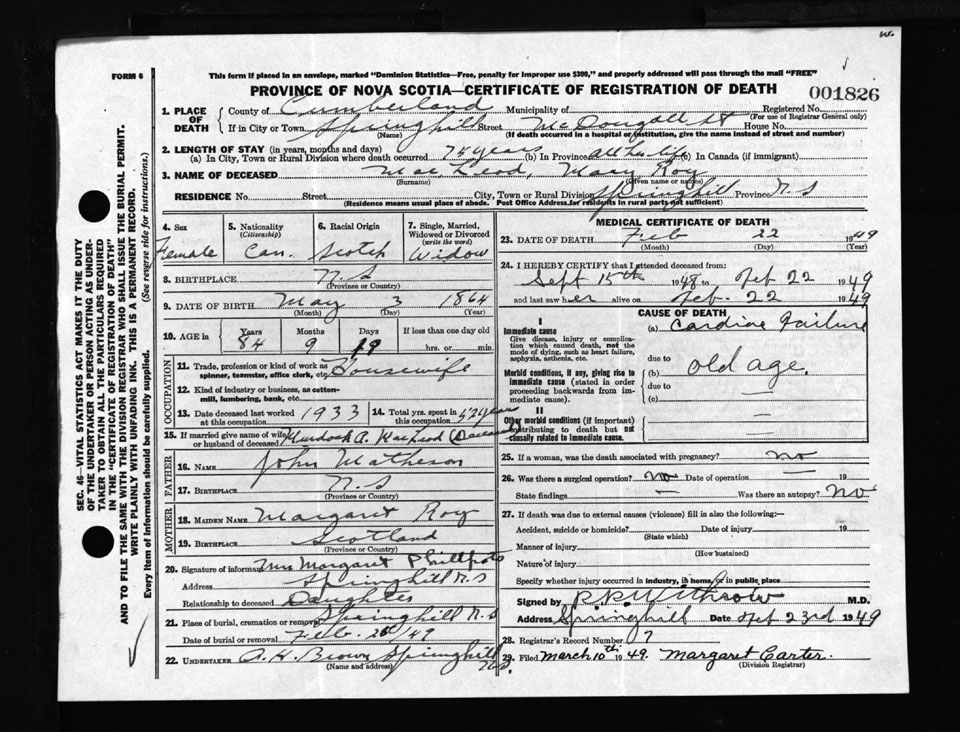 w.
FORM 6
This form if placed in an envelope, marked "Dominion Statistics—Free, penalty for improper use $300," and properly addressed will pass through the mail "FREE"
PROVINCE OF NOVA SCOTIA—CERTIFICATE OF REGISTRATION OF DEATH
001826
1. PLACE OF DEATH
County of Cumberland Municipality of Registered No.
(For use of Registrar General only)
If in City or Town Springhill Street McDougall St House No.
(Name) (If death occurred in a hospital or institution, give the name instead of street and number)
2. LENGTH OF STAY (in years, months and days)
(a) In City, Town or Rural Division where death occurred 74 years (b) In Province all her life (c) In Canada (if immigrant)
3. NAME OF DECEASED MacLeod, Mary Roy
(Surname) (Given name or names)
RESIDENCE No. Street City, Town or Rural Division Springhill Province N.S
(Residence means usual place of abode. Post Office Address for residents in rural parts not sufficient)
4. Sex Female
5. Nationality (Citizenship) Can.
6. Racial Origin Scotch
7. Single, Married, Widowed or Divorced (write the word) Widow
8. BIRTHPLACE N.S
(Province or Country)
9. DATE OF BIRTH May 3 1864
(Month) (Day) (Year)
10. AGE in Years Months Days If less than one day old
84 9 19 hrs. or min.
OCCUPATION
11. Trade, profession or kind of work as spinner, teamster, office clerk, etc. Housewife
12. Kind of industry or business, as cotton-mill, lumbering, bank, etc.
13. Date deceased last worked at this occupation 1933
14. Total yrs. spent in this occupation 52 years
15. If married give name of wife or husband of deceased Murdock A. MacLeod (Deceased)
FATHER
16. NAME John Matheson
17. BIRTHPLACE N.S
(Province or Country)
MOTHER
18. MAIDEN NAME Margaret Roy
19. BIRTHPLACE Scotland
(Province or Country)
20. Signature of informant Mrs Margaret Phillpots
Address Springhill N.S
Relationship to deceased Daughter
21. Place of burial, cremation or removal Springhill N.S
Date of burial or removal Feb. 25/49
22. UNDERTAKER A. H. Brown Springhill N.S.
(Name and address)
MEDICAL CERTIFICATE OF DEATH
23. DATE OF DEATH Feb 22 1949
(Month) (Day) (Year)
24. I HEREBY CERTIFY that I attended deceased from:
Sept 15th 1948 to Feb 22 1949
and last saw her alive on Feb. 22 1949
CAUSE OF DEATH
I
Immediate cause
Give disease, injury or complication which caused death, not the mode of dying, such as heart failure, asphyxia, asthenia, etc.
(a) Cardiac Failure
due to
Morbid conditions, if any, giving rise to immediate cause (stated in order proceeding backwards from immediate cause).
(b) old age.
due to —
(c) —
II
Other morbid conditions (if important) contributing to death but not causally related to immediate cause.
25. If a woman, was the death associated with pregnancy? no
26. Was there a surgical operation? No Date of operation — 19
State findings — Was there an autopsy? No
27. If death was due to external causes (violence) fill in also the following:—
Accident, suicide or homicide? Date of injury 19
(State which)
Manner of injury
(How sustained)
Nature of injury
Specify whether injury occurred in industry, in home, or in public place
Signed by R.R. Withrow M.D.
Address Springhill Date Feb 23rd 1949
28. Registrar's Record Number 7
29. Filed March 10th 1949. Margaret Carter.
(Division Registrar)
SEC. 46—VITAL STATISTICS ACT MAKES IT THE DUTY
OF THE UNDERTAKER OR PERSON ACTING AS UNDER-
TAKER TO OBTAIN ALL THE PARTICULARS REQUIRED
IN THE "CERTIFICATE OF REGISTRATION OF DEATH"
AND TO FILE THE SAME WITH THE DIVISION REGISTRAR WHO SHALL ISSUE THE BURIAL PERMIT.
WRITE PLAINLY WITH UNFADING INK. THIS IS A PERMANENT RECORD.
Every item of information should be carefully supplied. (See reverse side for instructions.)